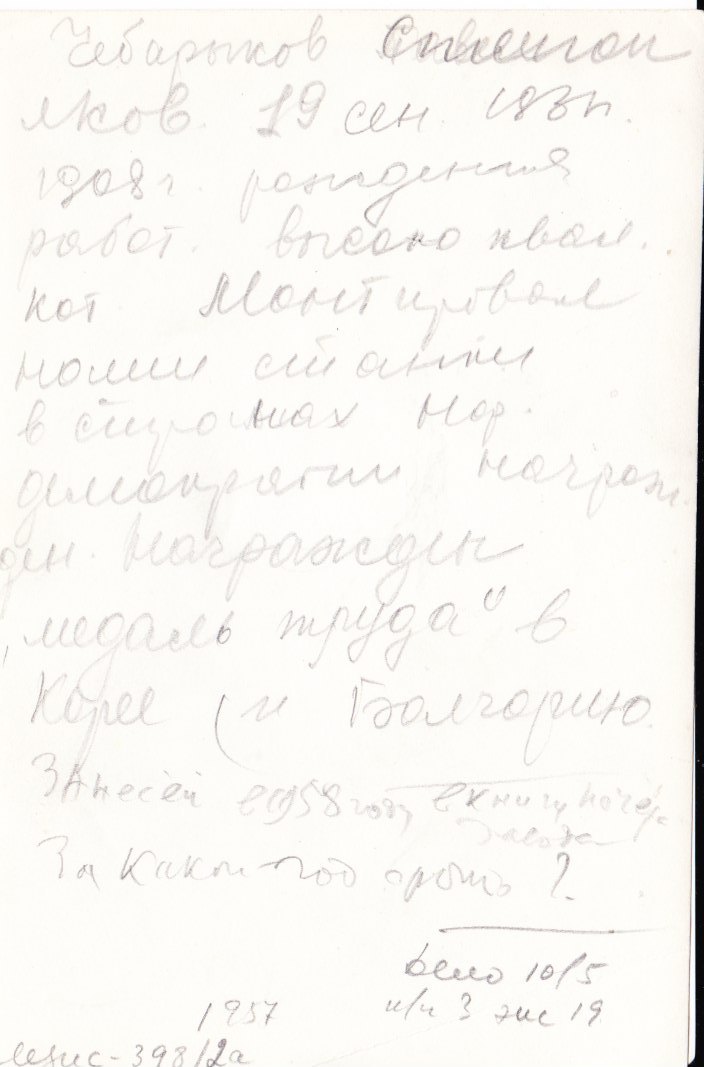 Чебарыков
Яков. 19 сен. 1931г.
1908 г. рождения
работ. высоко квал.
кот. Монтировал
наши станки
в странах Нар.
демократии Награж
ден. Награжден
„медаль труда" в
Корее (и Болгарию
Занесён в 1958 году в книгу почёта
завода
За какой год фото ?
бело 10/5
и/н 3 экс 19
1957
398/2а